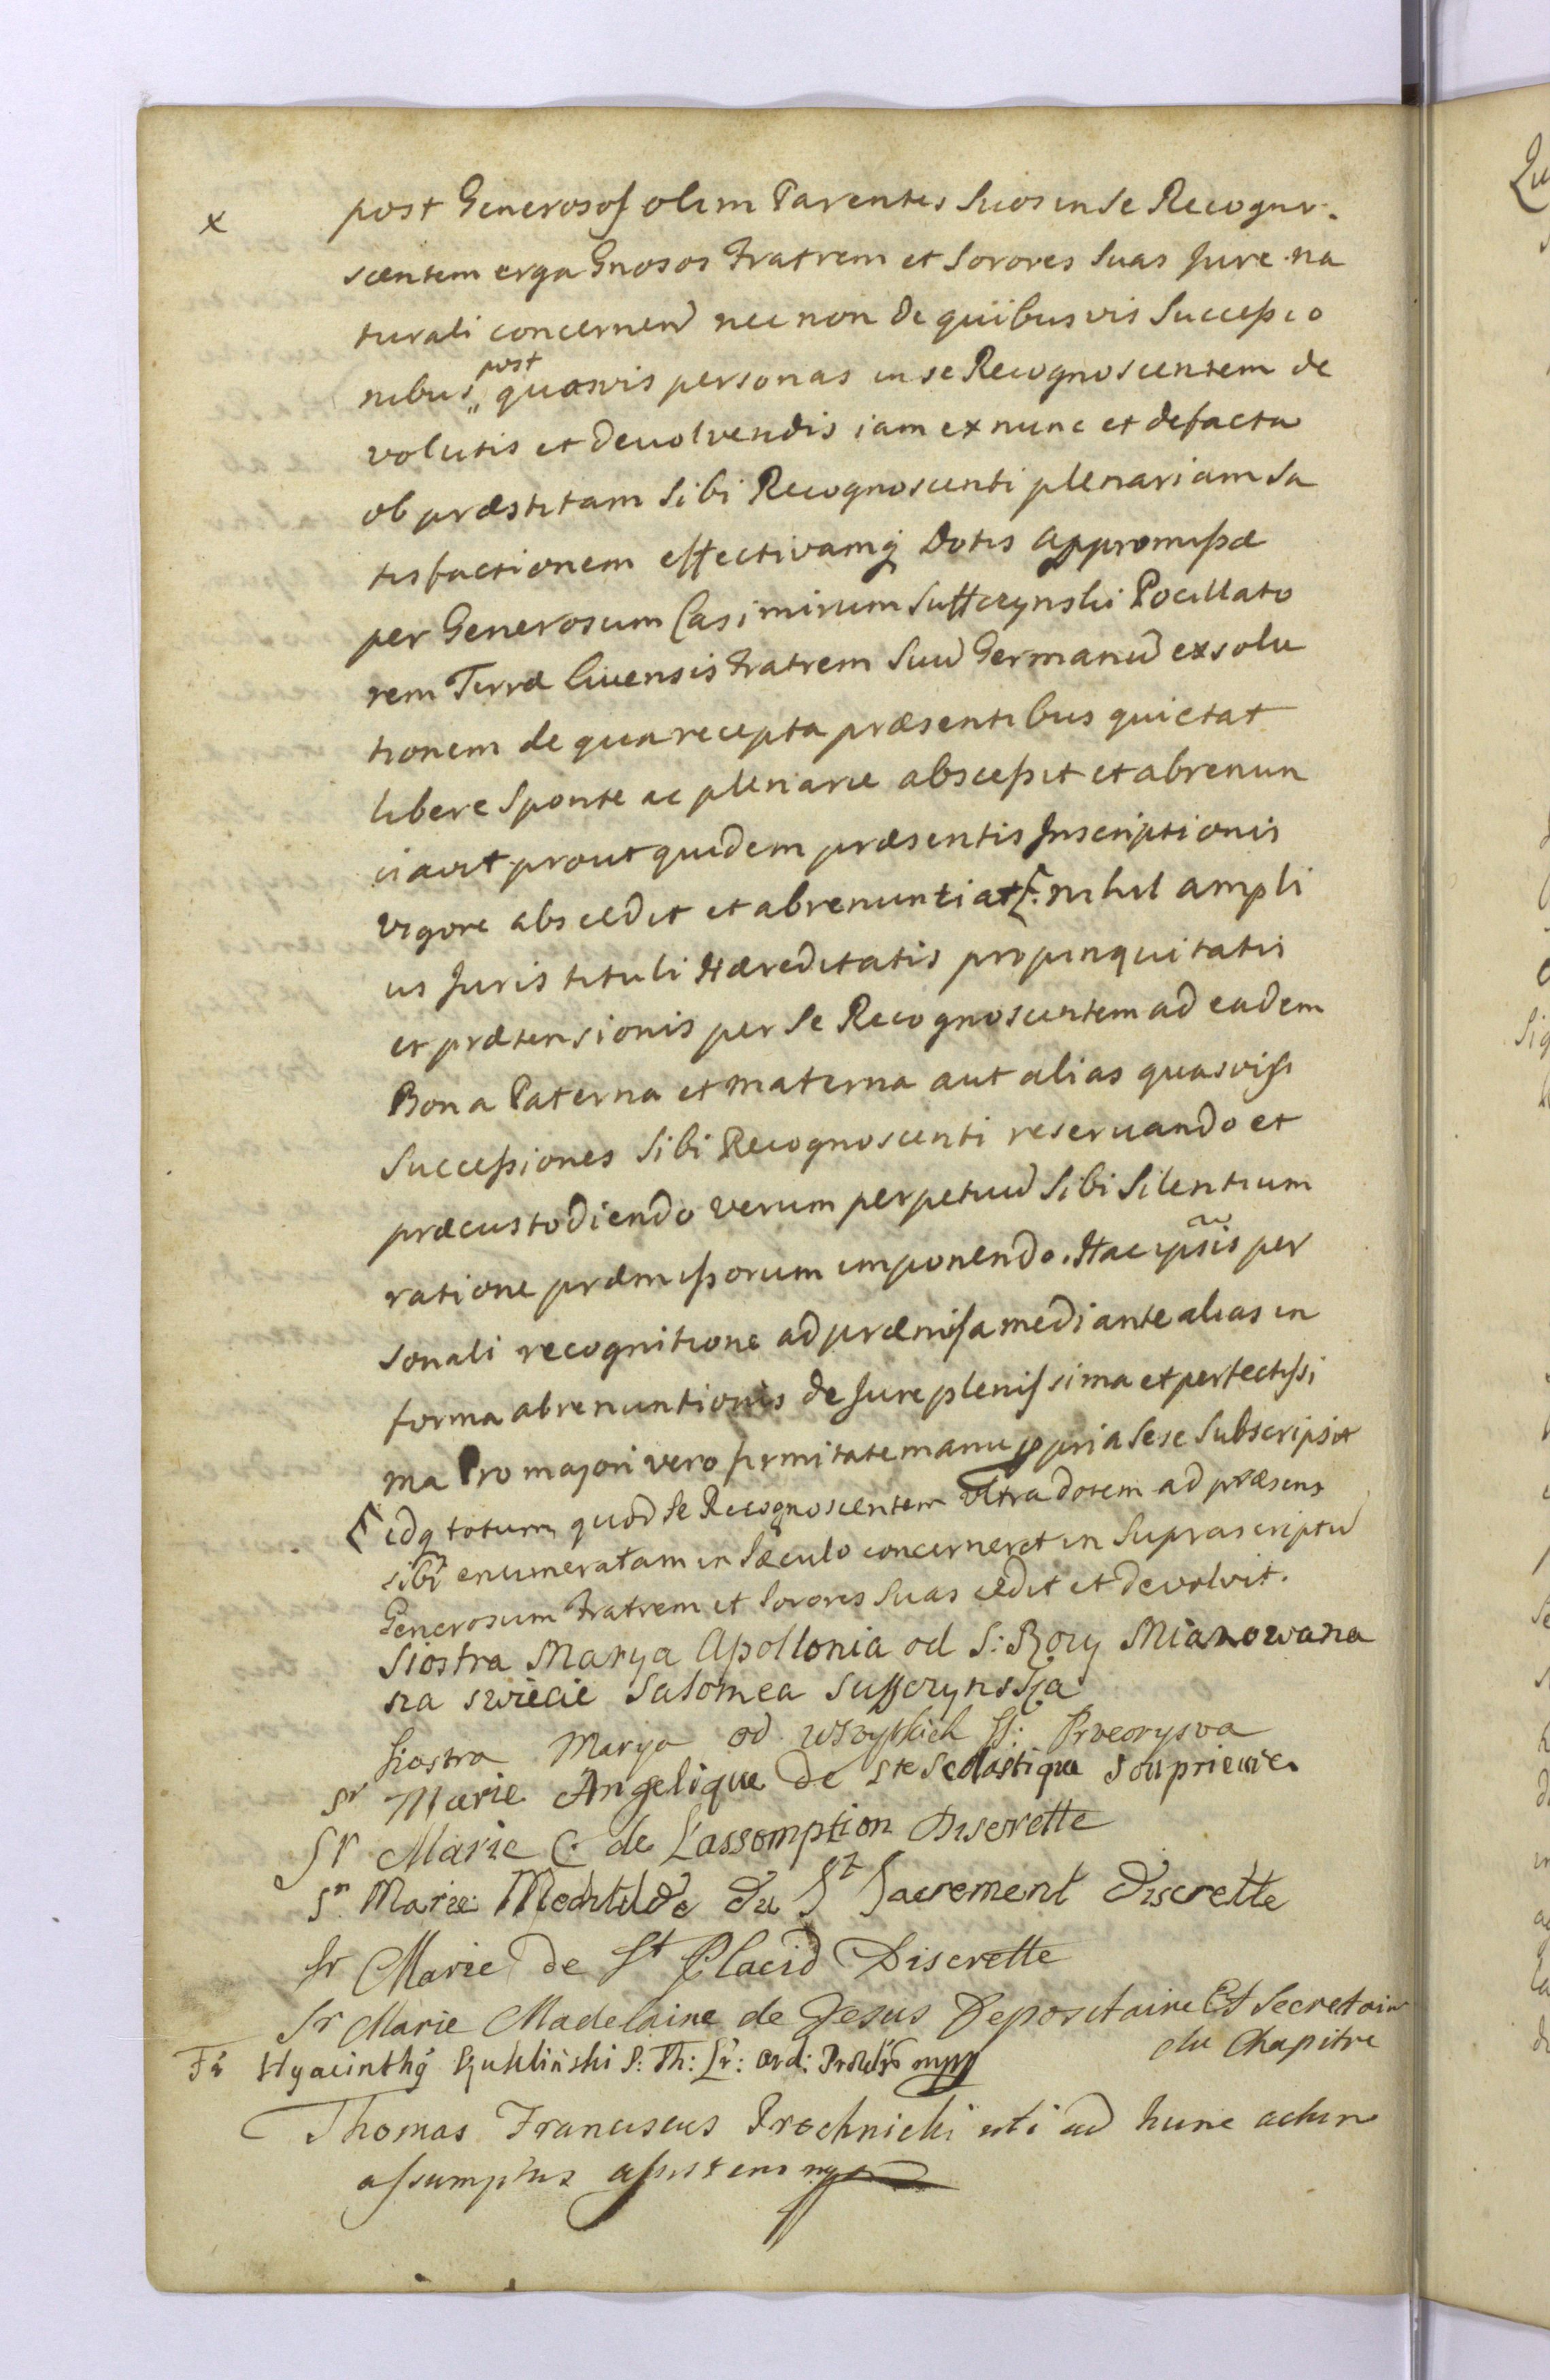 x post Generosos olim Parentes Suos in Se Recogno-
scentem erga Gnosos Fratrem et Sorores Suas Jure na
turali concernend nec non de quibusvis Successio
nibus post quasvis personas in se Recognoscentem de
volutis et devolvendis iam ex nunc et defacto
ob præstitam Sibi Recognoscenti plenariam Sa
tisfactionem effectivamq Dotis appromissæ
per Generosum Casimirum Suffczynski Pocillato
rem Terræ Livensis Fratrem Suũ Germanũ exsolu
tionem de qua recepta præsentibus quietat
libere Sponte ac plenarie abscessit et abrenun
ciavit prout quidem præsentis Inscriptionis
vigore abscedit et abrenuntiat [: nihil ampli
us Juris tituli Hæreditatis propinquitatis
et prætensionis per Se Recognoscentem ad eadem
Bona Paterna et Materna aut alias quasvis
Successiones Sibi Recognoscenti reservando et
præcustodiendo verum perpetuũ Sibi Silentium
ratione præmissorum imponendo. Hac ipsis per
sonali recognitione ad præmissa mediante alias in
forma abrenuntionis de Jure plenissima et perfectissi
ma Pro majori vero firmitate manu ppria Sese Subscripsit
[ idq totum quod Se Recognoscentem ultra dotem ad præsens
sibi enumeratam in Sæculo concerneret in Suprascriptũ
Generosum Fratrem et Sorores Suas cedit et devolvit.
Siostra Marya Apollonia od S: Rozy Mianowana
na swiecie Salomea Suffczynska
Siostra Marya od wszystkich SS: Przeorysza
Sr Marie Angelique de Ste Scolastique Souprieure
Sr Marie C. de L'assomption Discrette
Sr Marie Mechtilde du St Sacrement Discrette
Sr Marie de St Placid Discrette
Sr Marie Madelaine de Jesus Depositaire Et Secretaire
du Chapitre
Fr Hyacinthy S: Th: Lr: ord: mpp
Thomas Franciscus Prochnicki uti ad hunc actum
assumptus assistens mp